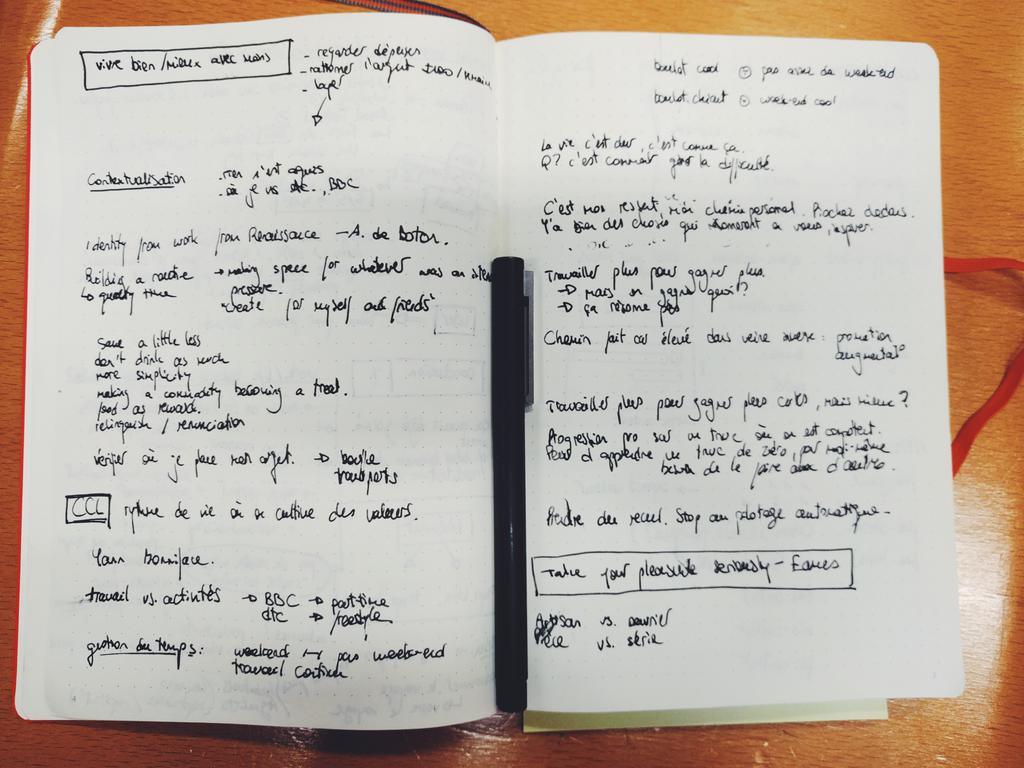 vivre bien/mieux avec moins
- regarder dépenses
- rationner l'argent
- loyer
Contextualisation
. rien n'est acquis
. où je vs etc., BBC
Identity from work from Renaissance - A. de Botton.
Building a routine → making space for whatever was an
↳ quality time pressure.
create for myself and friends
Save a little less
don't drink as much
more simplicity
making a commodity becoming a treat.
food as reward.
relinquish / renunciation
Vérifier où je place mon argent. → bouffe
transports
CCL rythme de vie où on cultive des valeurs.
Yann Bonniface.
travail vs. activités → BBC → part-time
etc → freestyle
gestion du temps: weekend pas week-end
travail continu
boulot cool ⊖ pas assez de week-end
boulot chiant ⊖ week-end cool
La vie c'est dur, c'est comme ça.
Q? c'est comment gérer la difficulté.
C'est mon ressenti, mon chemin personnel. Piochez dedans.
Y'a bien des choses qui résonneront en vous, inspirer.
Travailler plus pour gagner plus.
→ mais on gagne quoi?
→ ça résonne pas
Chemin fait car élevé dans veine inverse: promotion
augmentat°
Travailler plus pour gagner plus certes, mais mieux?
Progression pro sur un truc où on est compétent.
d'apprendre un truc de zéro, par moi-même
besoin de le faire à d'autres.
Prendre du recul. Stop au pilotage automatique.
Take your pleasure seriously - Eames
Artisan vs. ouvrier
Pièce vs. série